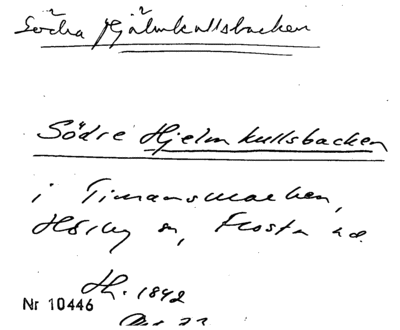 Södra Hjälmkullsbacken
Södre Hjelmkullsbacken
i Timansmarken,
Hörby sn, Frosta hd.
Hh. 1842
Nr 10446